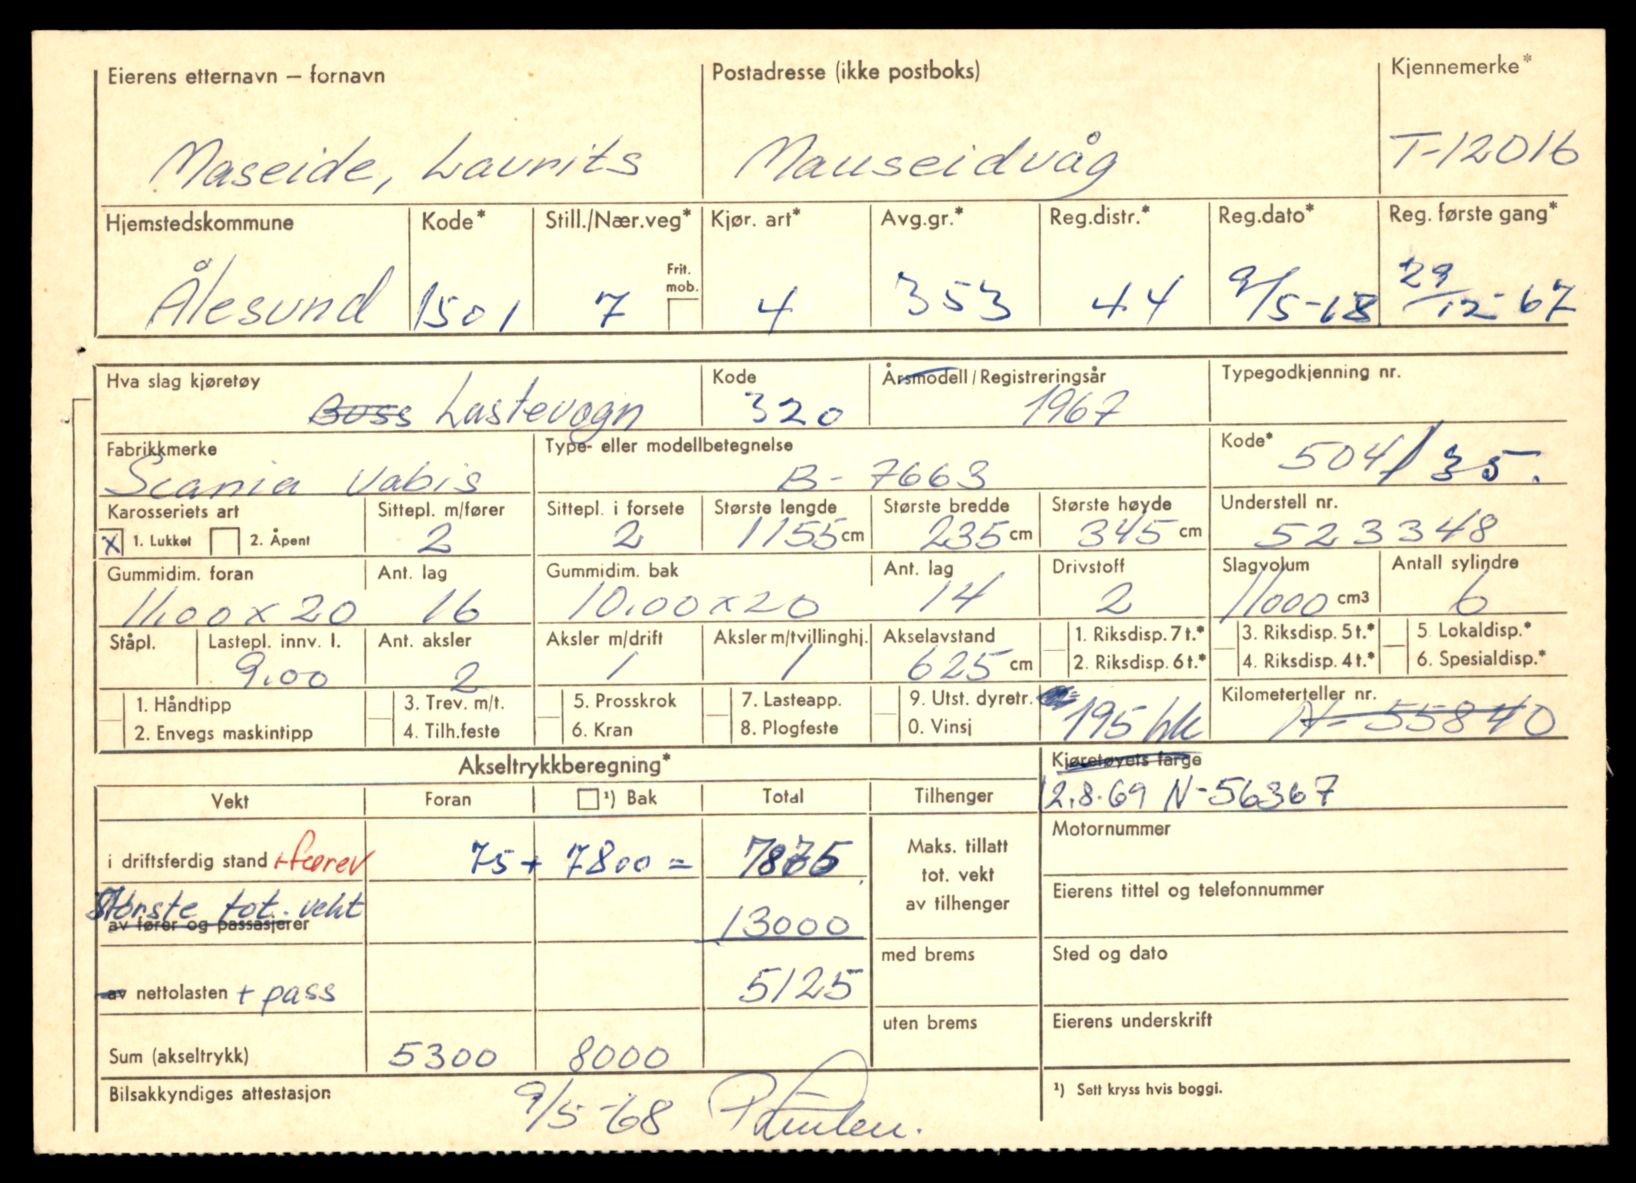 Eierens etternavn – fornavn Postadresse (ikke postboks) Kjennemerke*
Maseide, Laurits Mauseidvåg T-12016
Hjemstedskommune Kode* Still./Nær.veg* Kjør. art* Avg.gr.* Reg.distr.* Reg.dato* Reg. første gang*
Frit. mob.
Ålesund 1501 7 4 353 44 9/5-68 29/12-67
Hva slag kjøretøy Kode Årsmodell / Registreringsår Typegodkjenning nr.
Buss Lastevogn 320 1967
Fabrikkmerke Type- eller modellbetegnelse Kode*
Scania Vabis B-7663 504/35.
Karosseriets art Sittepl. m/fører Sittepl. i forsete Største lengde Største bredde Største høyde Understell nr.
x 1. Lukket 2. Åpent 2 2 1155 cm 235 cm 345 cm 523348
Gummidim. foran Ant. lag Gummidim. bak Ant. lag Drivstoff Slagvolum Antall sylindre
11.00 x 20 16 10.00 x 20 14 2 11000 cm3 6
Ståpl. Lastepl. innv. l. Ant. aksler Aksler m/drift Aksler m/tvillinghj. Akselavstand 1. Riksdisp. 7 t.* 3. Riksdisp. 5 t.* 5. Lokaldisp.*
9.00 2 1 1 625 cm 2. Riksdisp. 6 t.* 4. Riksdisp. 4 t.* 6. Spesialdisp.*
1. Håndtipp 3. Trev. m/t. 5. Prosskrok 7. Lasteapp. 9. Utst. dyretr. Kilometerteller nr.
2. Envegs maskintipp 4. Tilh.feste 6. Kran 8. Plogfeste 0. Vinsj 195 hk A-55840
Akseltrykkberegning* Kjøretøyets farge
Vekt Foran ¹) Bak Total Tilhenger 12.8.69 N-56367
i driftsferdig stand + fører 75 + 7800 = 7875 Maks. tillatt tot. vekt av tilhenger Motornummer
Største tot. vekt
av fører og passasjerer 13000 Eierens tittel og telefonnummer
av nettolasten + pass 5125 med brems Sted og dato
Sum (akseltrykk) 5300 8000 uten brems Eierens underskrift
Bilsakkyndiges attestasjon 9/5-68 ¹) Sett kryss hvis boggi.